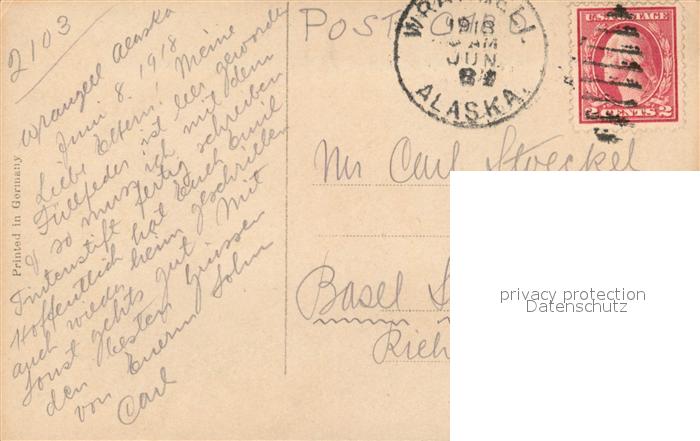 2103
Wrangell Alaska
Juni 8. 1918
Liebe Eltern! Meine
Füllfeder ist leer geworden
& so muss ich mit dem
Tintenstift fertig schreiben
Hoffentlich hat Euch Emil
auch wieder heim geschrieben
Sonst gehts gut. Mit
den besten Grüssen
von Euerm Sohn
Carl
Printed in Germany
POST CARD
WRANGELL
1918
AM
JUN
ALASKA.
U.S. POSTAGE
2 CENTS 2
Mr Carl Stoeckel
Basel
Rieh
privacy protection
Datenschutz